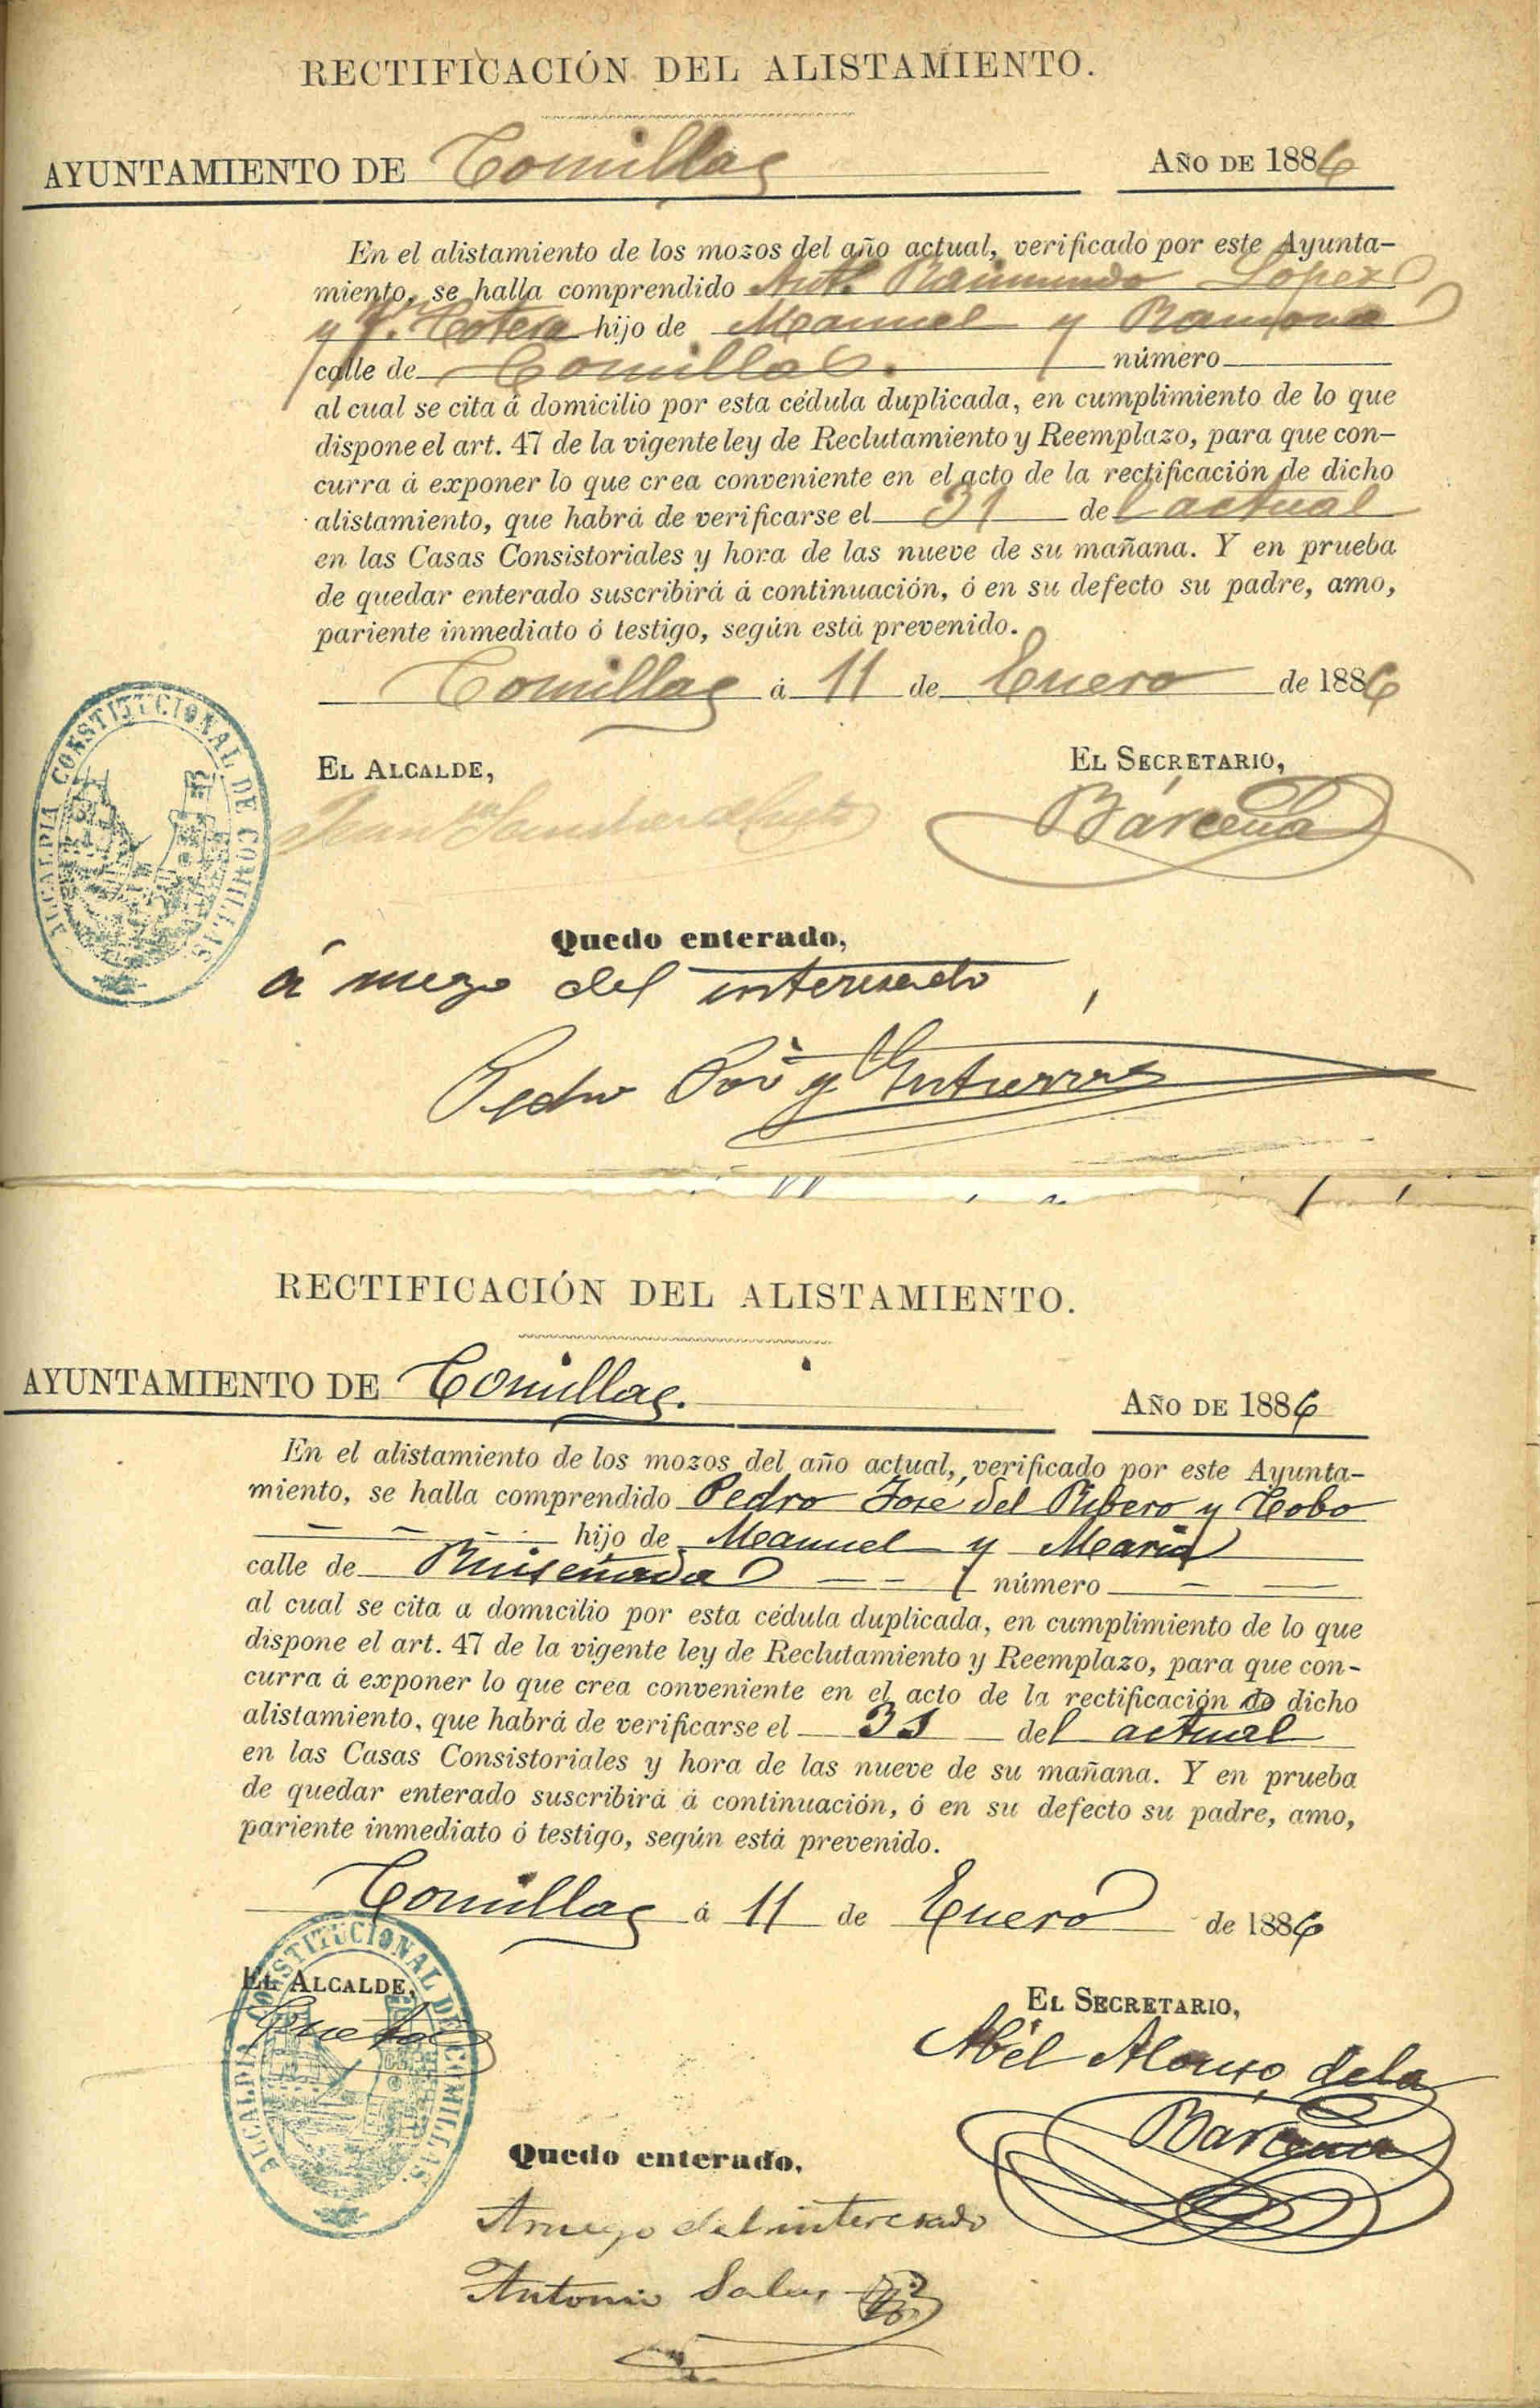 RECTIFICACIÓN DEL ALISTAMIENTO.
AYUNTAMIENTO DE Comillas AÑO DE 1886
En el alistamiento de los mozos del año actual, verificado por este Ayunta-
miento, se halla comprendido Antº Raimundo Lopez
y Cotera hijo de Manuel y Ramona
calle de Comillas. número
al cual se cita á domicilio por esta cédula duplicada, en cumplimiento de lo que
dispone el art. 47 de la vigente ley de Reclutamiento y Reemplazo, para que con-
curra á exponer lo que crea conveniente en el acto de la rectificación de dicho
alistamiento, que habrá de verificarse el 31 del actual
en las Casas Consistoriales y hora de las nueve de su mañana. Y en prueba
de quedar enterado suscribirá á continuación, ó en su defecto su padre, amo,
pariente inmediato ó testigo, según está prevenido.
Comillas á 11 de Enero de 1886
EL ALCALDE, EL SECRETARIO,
Juan Bárcena
ALCALDIA CONSTITUCIONAL DE COMILLAS
Quedo enterado,
á ruego del interesado
Pedro y Gutierrez
RECTIFICACIÓN DEL ALISTAMIENTO.
AYUNTAMIENTO DE Comillas. AÑO DE 1886
En el alistamiento de los mozos del año actual, verificado por este Ayunta-
miento, se halla comprendido Pedro José del Ribero y Cobo
hijo de Manuel y Maria
calle de Ruiseñada número
al cual se cita a domicilio por esta cédula duplicada, en cumplimiento de lo que
dispone el art. 47 de la vigente ley de Reclutamiento y Reemplazo, para que con-
curra á exponer lo que crea conveniente en el acto de la rectificación de dicho
alistamiento, que habrá de verificarse el 31 del actual
en las Casas Consistoriales y hora de las nueve de su mañana. Y en prueba
de quedar enterado suscribirá á continuación, ó en su defecto su padre, amo,
pariente inmediato ó testigo, según está prevenido.
Comillas á 11 de Enero de 1886
EL ALCALDE, EL SECRETARIO,
Cueto Abél Alonso de la
Bárcena
ALCALDIA CONSTITUCIONAL DE COMILLAS
Quedo enterado,
Aruego del interesado
Antonio